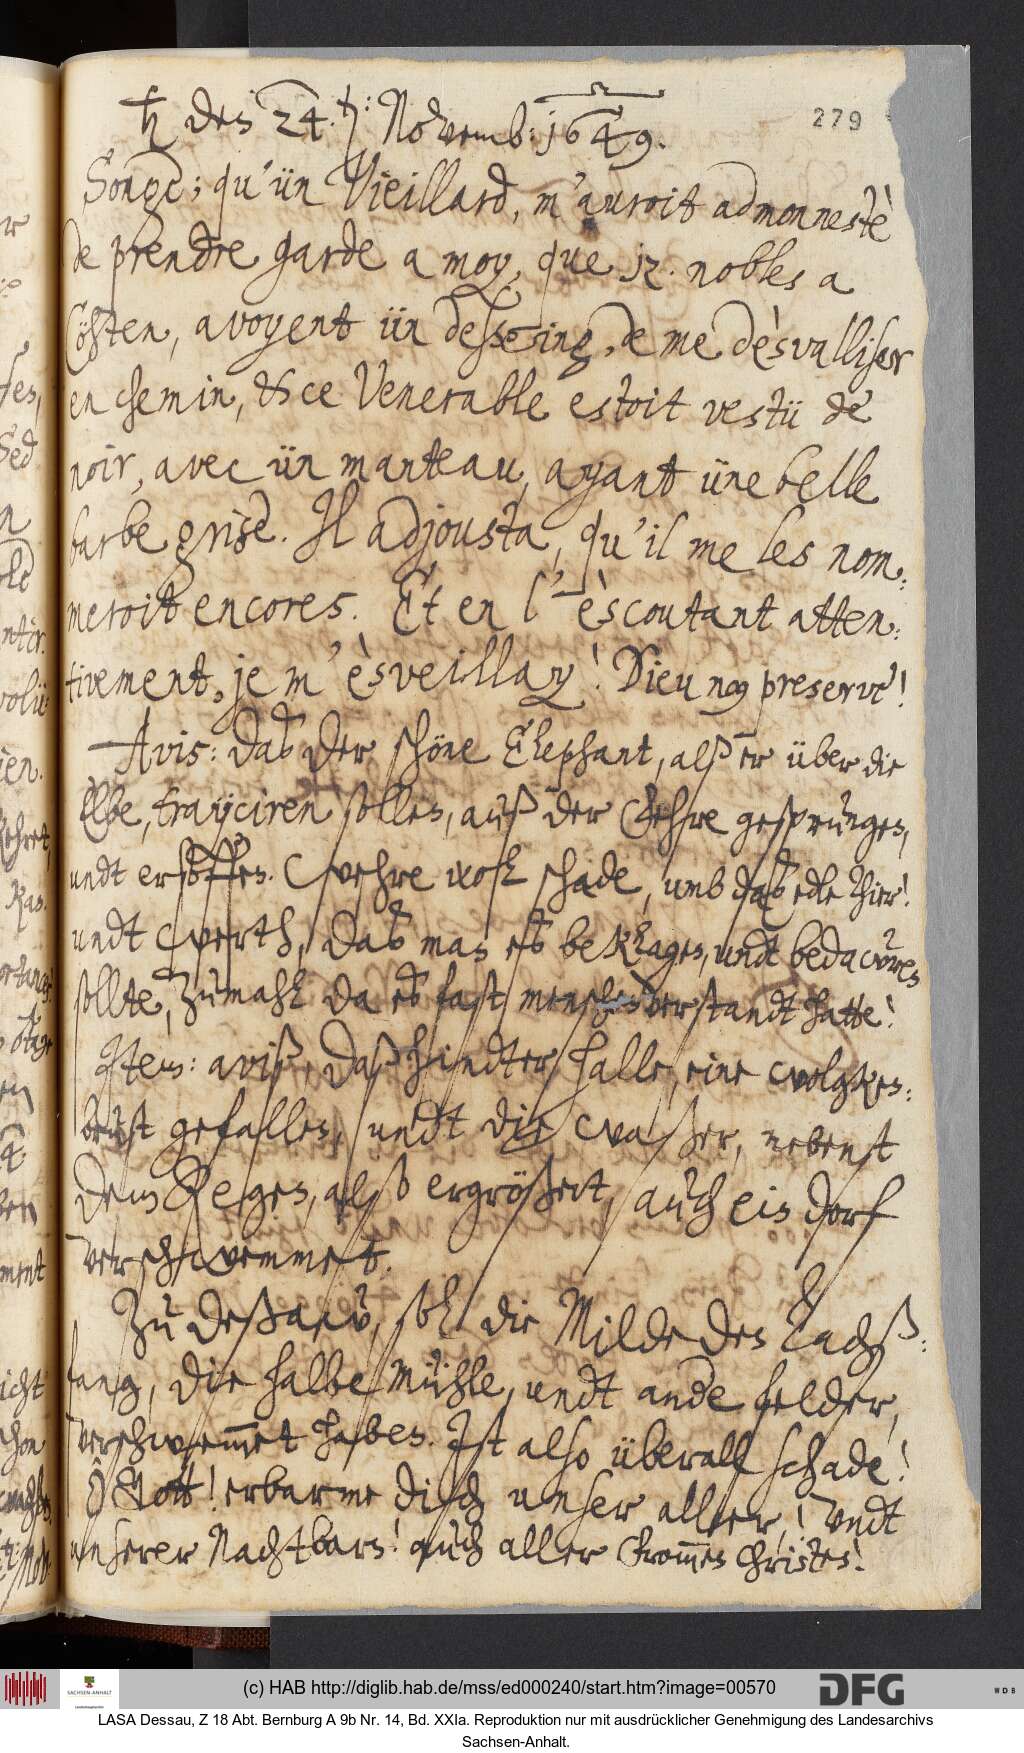 ♄ des 24. ħ: Novemb: 1649.
279
Songe; qu'ün Vieillard, m'auroit admonnestè
de prendre garde a moy, que 12. nobles a
Cöhten, avoyent ün dessesing, de me dèsvalliser
en chemin, & ce Venerable estoit vestü de
noir, avec ün manteau, ayant üne belle
barbe grise. Il adjousta, qu'il me les nom-
meroit encores. Et en l'èscoutant atten-
tivement, je m'èsveillay! Dieu nous preserve!
Avis: daß der schöne Elephant, alß er über die
Elbe, trayciren sollen, auß der Vehre gesprungen,
undt ersoffen. Wehre wol schade, umb daß edle thier!
undt werth, daß man eß beklagen, undt bedawren
sollte, zumahl da eß fast menschenverstandt hatte!
Item: aviß, daß hindter halle, eine wolgken-
brust gefallen, undt die waßer, nebenst
dem Regen, alß ergrößert, auch ein dorf
verschwemmet.
Zu Deßaw, soll die Milde den Lachß-
fang, die halbe Mühle, undt andere felder,
verschwem̅et haben. Ist also überall schade!
Ô Gott! erbarme dich unser aller! undt
unserer Nachtbarn! auch aller from̅en Christen!
(c) HAB http://diglib.hab.de/mss/ed000240/start.htm?image=00570
SACHSEN-ANHALT
DFG
WDB
LASA Dessau, Z 18 Abt. Bernburg A 9b Nr. 14, Bd. XXIa. Reproduktion nur mit ausdrücklicher Genehmigung des Landesarchivs
Sachsen-Anhalt.